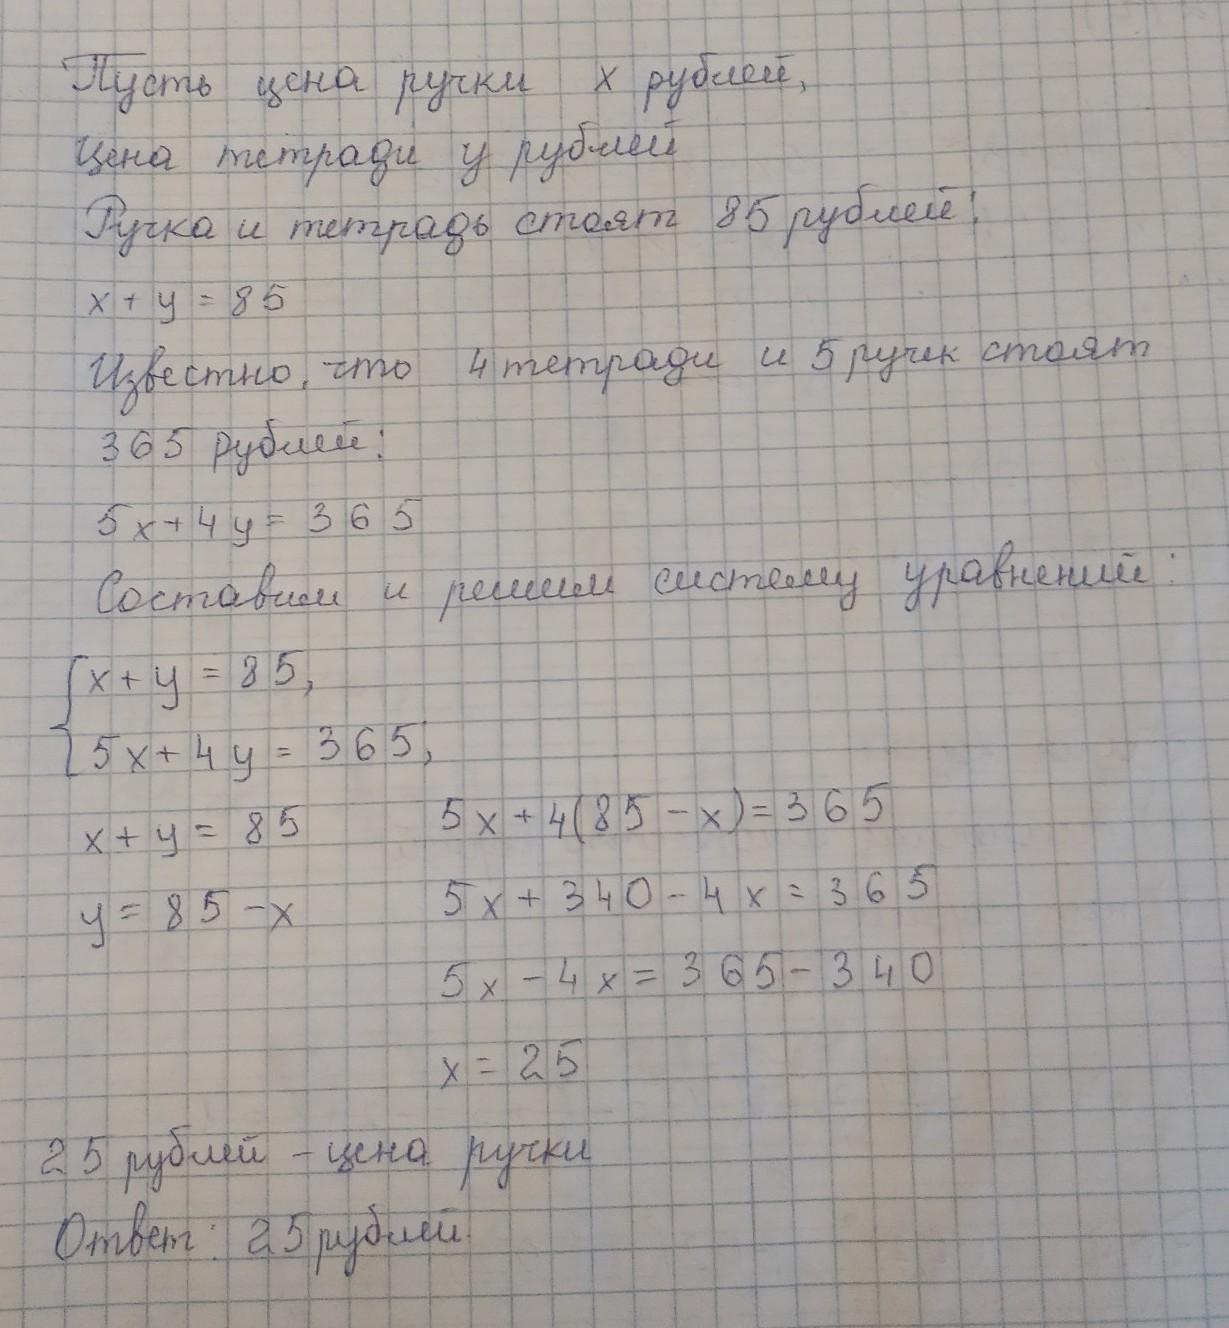 Пусть цена ручки x рублей,
Цена тетради y рублей
Ручка и тетрадь стоят 85 рублей:
x + y = 85
Известно, что 4 тетради и 5 ручек стоят
365 рублей:
5x + 4y = 365
Составим и решим систему уравнений:
{ x + y = 85,
5x + 4y = 365,
x + y = 85
y = 85 - x
5x + 4(85 - x) = 365
5x + 340 - 4x = 365
5x - 4x = 365 - 340
x = 25
25 рублей - цена ручки
Ответ: 25 рублей.